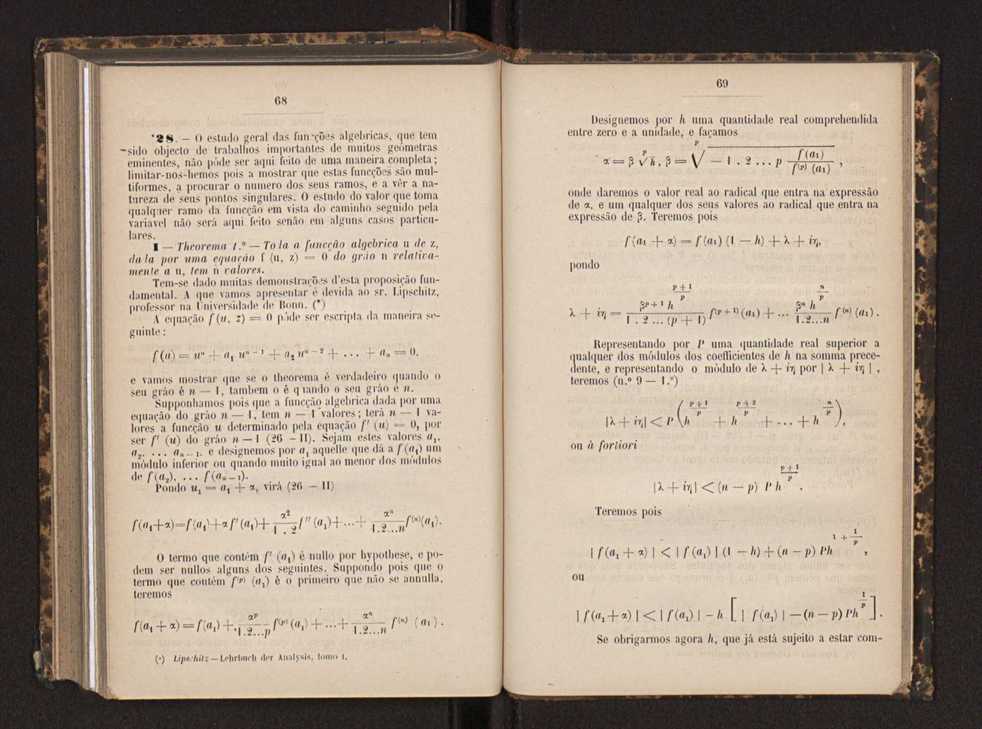 68
28. — O estudo geral das funcções algebricas, que tem
sido objecto de trabalhos importantes de muitos geómetras
eminentes, não póde ser aqui feito de uma maneira completa;
limitar-nos-hemos pois a mostrar que estas funcções são mul-
tiformes, a procurar o numero dos seus ramos, e a vêr a na-
tureza de seus pontos singulares. O estudo do valor que toma
qualquer ramo da funcção em vista do caminho seguido pela
variavel não será aqui feito senão em alguns casos particu-
lares.
I — Theorema 1.º — Toda a funcção algebrica u de z,
dada por uma equação f (u, z) = 0 do gráo n relativa-
mente a u, tem n valores.
Tem-se dado muitas demonstrações d'esta proposição fun-
damental. A que vamos apresentar é devida ao sr. Lipschitz,
professor na Universidade de Bonn. (*)
A equação f (u, z) = 0 póde ser escripta da maneira se-
guinte:
f(u) = uⁿ + a₁ uⁿ⁻¹ + a₂ uⁿ⁻² + . . . + aₙ = 0.
e vamos mostrar que se o theorema é verdadeiro quando o
seu gráo é n — 1, tambem o é quando o seu gráo é n.
Supponhamos pois que a funcção algebrica dada por uma
equação do gráo n — 1, tem n — 1 valores; terá n — 1 va-
lores a funcção u determinado pela equação f' (u) = 0, por
ser f' (u) do gráo n — 1 (26 — II). Sejam estes valores a₁,
a₂, . . . aₙ₋₁, e designemos por a₁ aquelle que dá a f (a₁) um
módulo inferior ou quando muito igual ao menor dos módulos
de f (a₂), . . . f (aₙ₋₁).
Pondo u₁ = a₁ + α, virá (26 — II)
f(a₁+α)=f(a₁)+αf'(a₁)+ α²/(1 . 2) f''(a₁)+...+ αⁿ/(1.2...n) f⁽ⁿ⁾(a₁).
O termo que contém f' (a₁) é nullo por hypothese, e po-
dem ser nullos alguns dos seguintes. Suppondo pois que o
termo que contém f⁽ᵖ⁾ (a₁) é o primeiro que não se annulla,
teremos
f(a₁ + α) = f(a₁) + αᵖ/(1.2...p) f⁽ᵖ⁾(a₁) + ...+ αⁿ/(1.2...n) f⁽ⁿ⁾ (a₁).
(*) Lipschitz — Lehrbuch der Analysis, tomo I.
69
Designemos por h uma quantidade real comprehendida
entre zero e a unidade, e façamos
α = β ᵖ√h, β = ᵖ√(— 1 . 2 ... p f(a₁)/f⁽ᵖ⁾(a₁)) ,
onde daremos o valor real ao radical que entra na expressão
de α, e um qualquer dos seus valores ao radical que entra na
expressão de β. Teremos pois
f(a₁ + α) = f(a₁) (1 — h) + λ + iη,
pondo
λ + iη = β^(p+1) h^((p+1)/p) / (1 . 2 ... (p + 1)) f⁽ᵖ⁺¹⁾(a₁) + ... βⁿ h^(n/p) / (1.2...n) f⁽ⁿ⁾(a₁).
Representando por P uma quantidade real superior a
qualquer dos módulos dos coefficientes de h na somma prece-
dente, e representando o módulo de λ + iη por | λ + iη | ,
teremos (n.º 9 — 1.º)
|λ + iη| < P (h^((p+1)/p) + h^((p+2)/p) + . . . + h^(n/p)),
ou à fortiori
|λ + iη| < (n — p) P h^((p+1)/p).
Teremos pois
| f(a₁ + α) | < | f(a₁) | (1 — h) + (n — p) Ph^(1 + 1/p),
ou
| f(a₁ + α) | < | f(a₁) | — h [ | f(a₁) | — (n — p) Ph^(1/p) ] .
Se obrigarmos agora h, que já está sujeito a estar com-